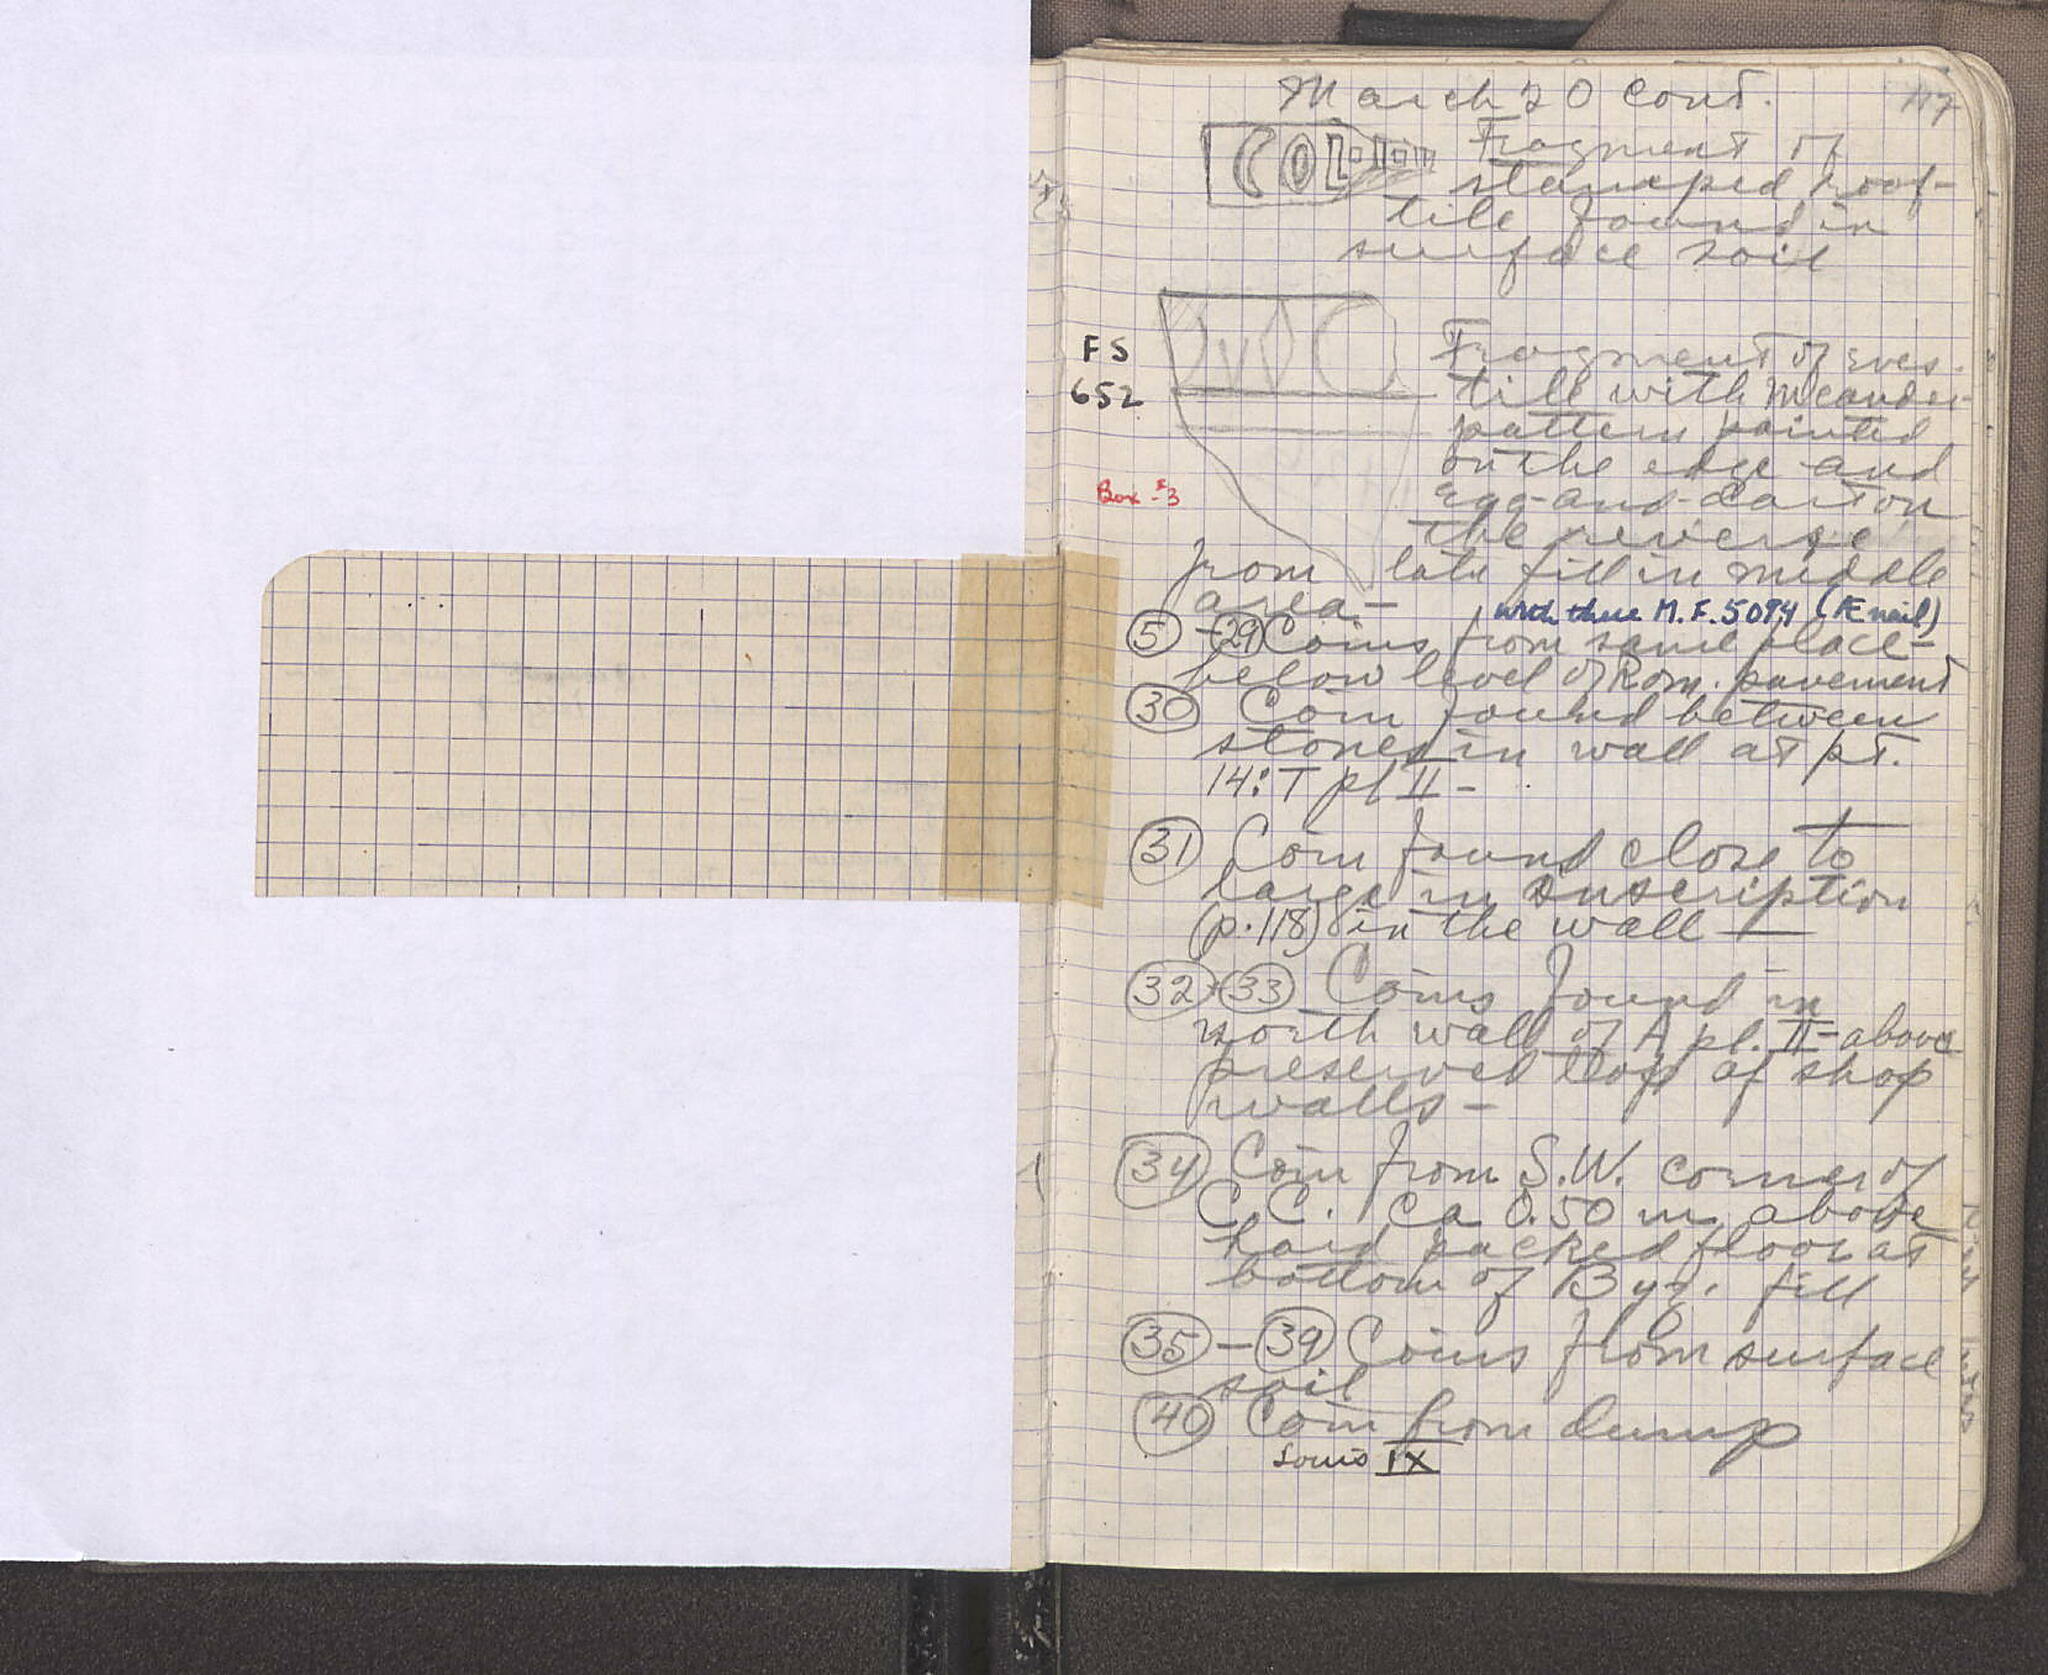 March 20 cont.
117
COL
Fragment of
stamped roof-
tile found in
surface soil
FS
652
Box #3
Fragment of eves-
till with meander
pattern painted
on the edge and
egg-and-dart on
the reverse
from late fill in middle
area —
with these M.F. 5094 (Æ nail)
(5) - (29) Coins from same place -
below level of Rom. pavement
(30) Coin found between
stones in wall at pt.
14:T pl II -
(31) Coin found close to
large inscription
(p. 118) in the wall —
(32) + (33) Coins found in
north wall of A pl. II - above
preserved tops of shop
walls -
(34) Coin from S.W. corner of
C.C. Ca 0.50 m. above
hard packed floor at
bottom of Byz. fill
(35) - (39) Coins from surface
soil
(40) Coin from dump
Louis IX